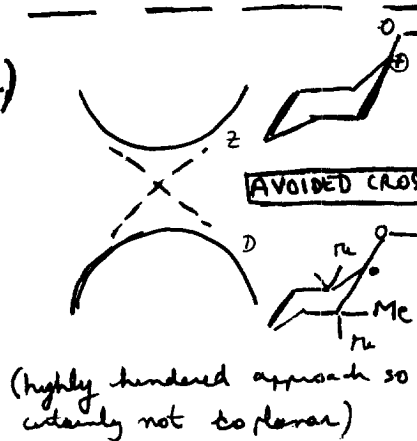 O
⊕
Z
AVOIDED CROS
D
O
Me
Me
Me
(highly hindered approach so
certainly not coplanar)